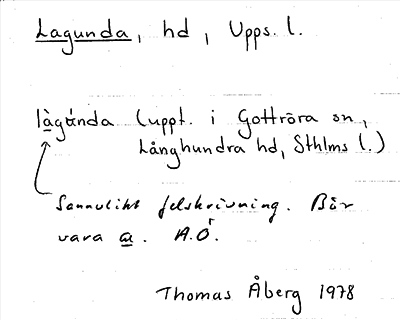 Lagunda, hd, Upps. l.
làgánda (uppt. i Gottröra sn,
Långhundra hd, Sthlms l.)
Sannolikt felskrivning. Bör
vara a. A.Ö.
Thomas Åberg 1978